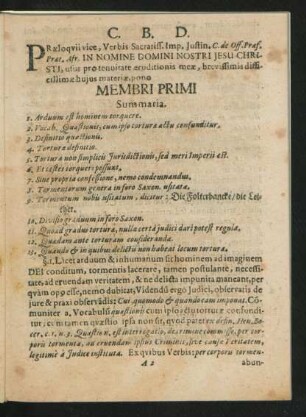 C. B. D.
PRæloqvii vice, Verbis Sacratiss. Imp. Justin. C. de Off. Præf.
Præt. Afr. IN NOMINE DOMINI NOSTRI JESU CHRI-
STI, usus pro tenuitate eruditionis meæ, brevissimis diffi-
cillimæ hujus materiæ, pono
MEMBRI PRIMI
Summaria.
1. Arduum est hominem torquere.
2. Vocab. Quæstionis, cum ipso torturæ actu confunditur.
3. Definitio quæstionis.
4. Torturæ definitio.
5. Tortura non simplicis Jurisdictionis, sed meri Imperii est.
6. Et testes torqueri possunt.
7. Sine propria confessione, nemo condemnandus.
8. Tormentorum genera in foro Saxon. usitata.
9. Tormentum nobis usitatum, dicitur: Die Folterbancke/die Lei-
ther.
10. Divisio graduum in foro Saxon.
11. Quoad gradus torturæ, nulla certa judici dari potest regula.
12. Quædam ante torturam consideranda.
13. Quando & in quibus delictis non habeat locum tortura.
§. 1. Licet arduum & inhumanum sit hominem ad imaginem
DEI conditum, tormentis lacerare, tamen postulante, necessi-
tate, ad eruendam veritatem, & ne delicta impunita maneant, per
qvàm opp esse, nemo dubitat; Videndū ergò Judici, observatis de
jure & praxi observādis: Cui, quomodo & quando eam imponat. Cō-
muniter a. Vocabulū quæstionis cum ipso actu torturæ confundi-
tur, cum tamen quæstio ipsa non sit, quod patet ex defin.
corporis tormenta, ad eruendam ipsius Criminis, sive causæ veritatem,
legitimè à Judice instituta. Ex quibus Verbis: per corporis tormen-
A 2
abun-